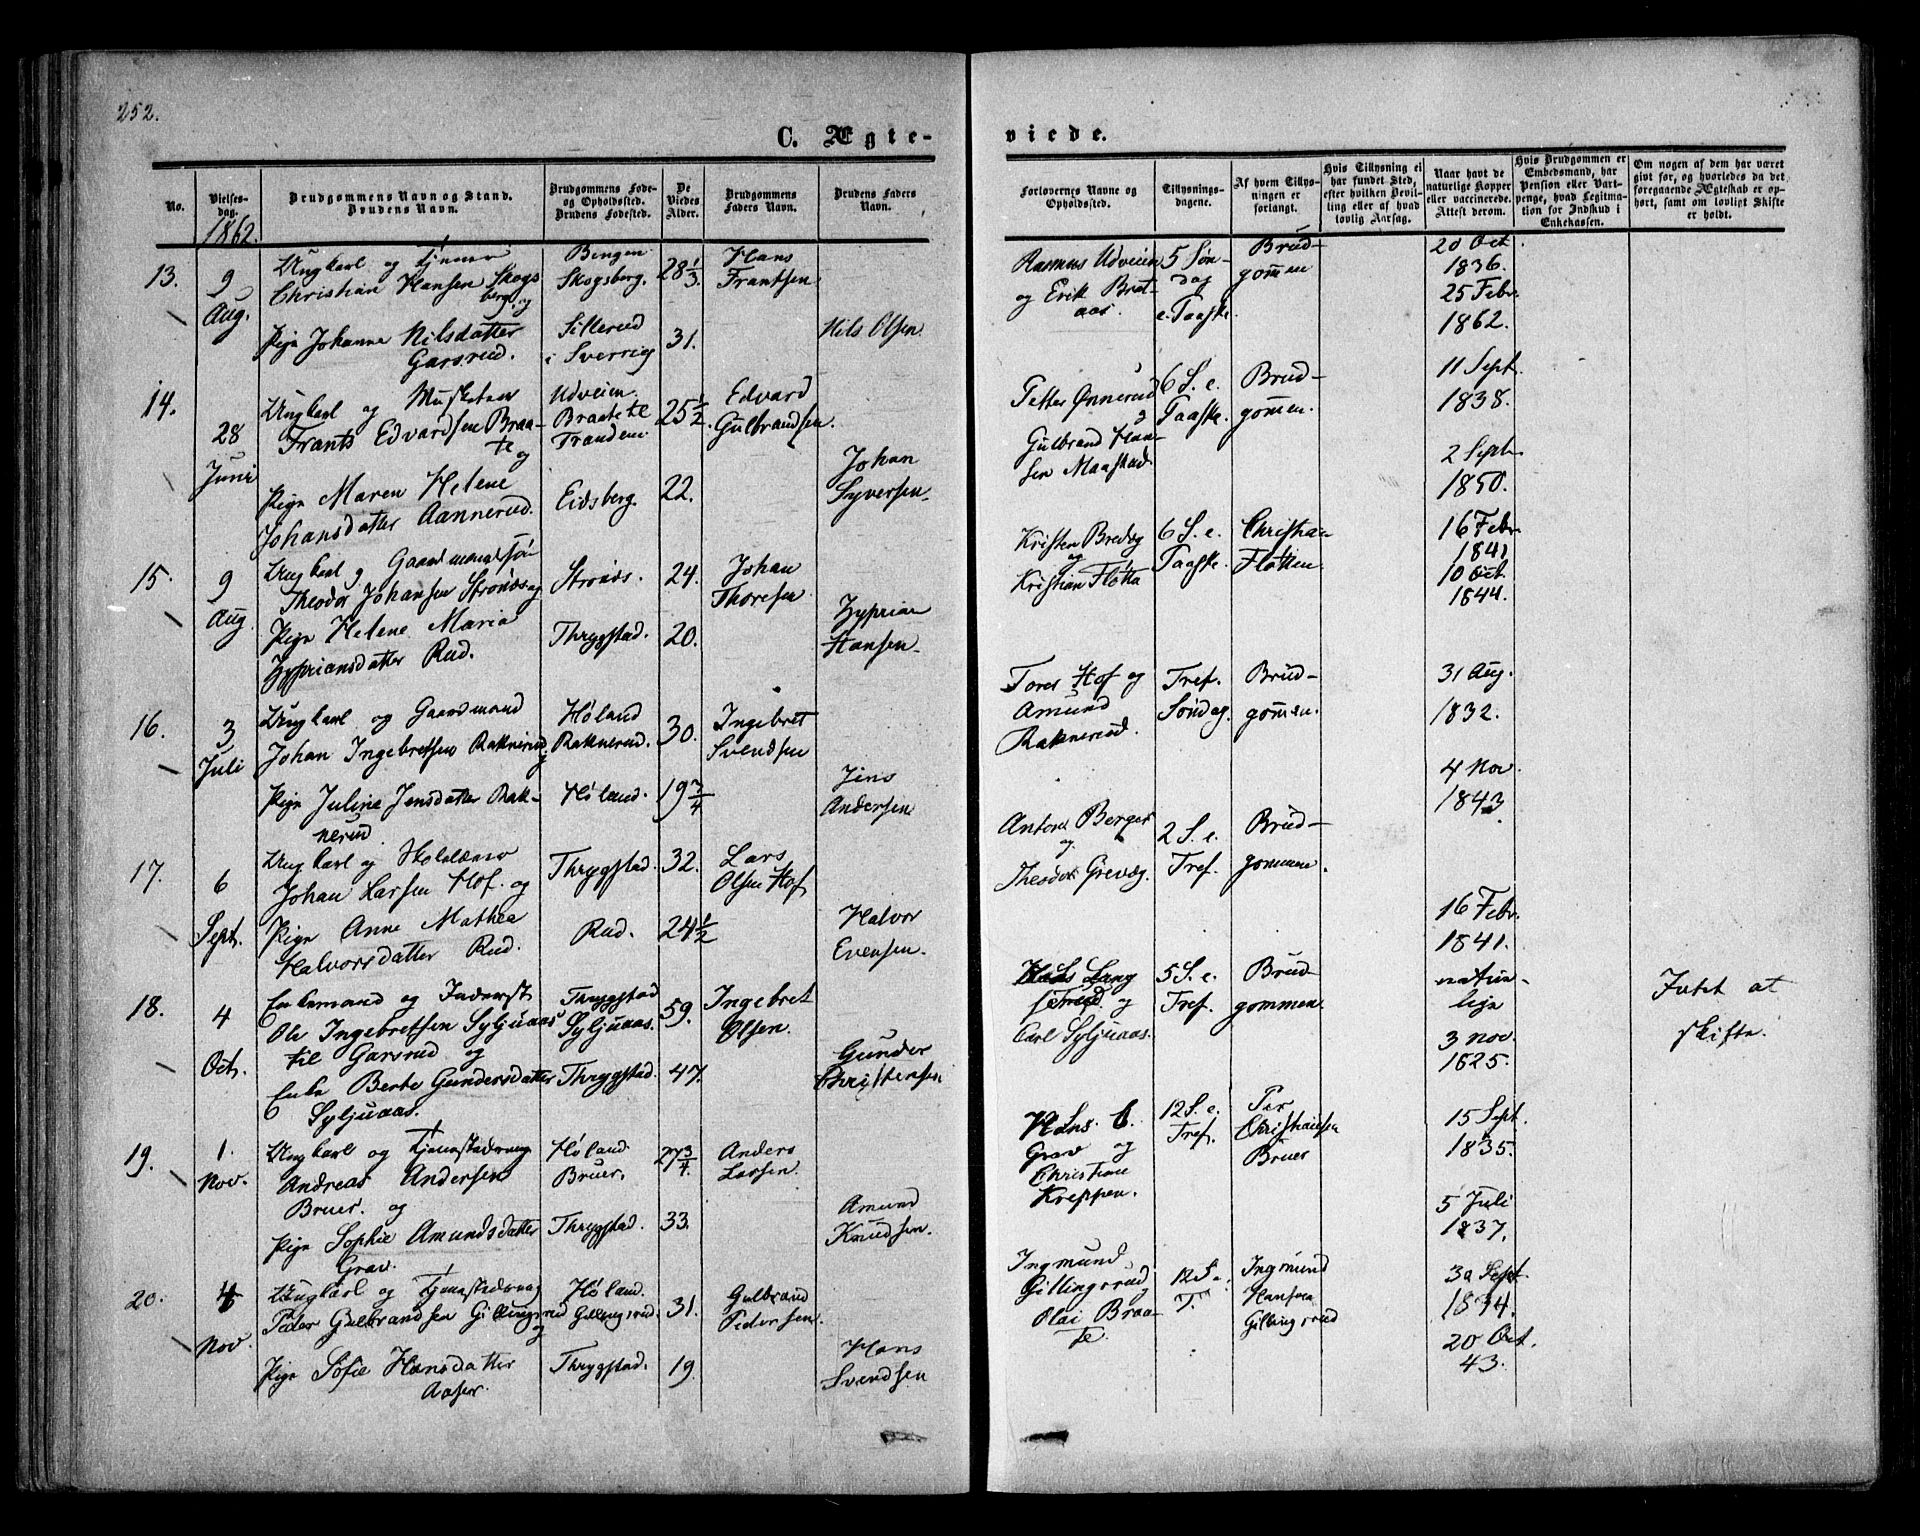 252.
C. Ægte-
viede.
No.
Vielses-
dag.
1862.
Brudgommens Navn og Stand.
Brudens Navn.
Brudgommens Føde-
og Opholdssted.
Brudens Fødested.
De
Viedes
Alder.
Brudgommens
Faders Navn.
Brudens Faders
Navn.
Forlovernes Navne og
Opholdssted.
Tillysnings-
dagene.
Af hvem Tillys-
ningen er
forlangt.
Hvis Tillysning ei
har fundet Sted,
efter hvilken Bevil-
ling eller af hvad
lovlig Aarsag.
Naar havt de
naturlige Kopper
eller vaccinerede.
Attest derom.
Hvis Brudgommen er
Embedsmand, har
Pension eller Vart-
penge, hvad Legitima-
tion for Indskud i
Enkekassen.
Om nogen af dem har været
givt før, og hvorledes da det
foregaaende Ægteskab er op-
hørt, samt om lovligt Skifte
er holdt.
13.
9
Aug.
Ungkarl og
Christian Hansen Skogs
berg, og
Pige Johanne Nilsdatter
Garsrud.
Skogsberg.
Sillerud
i Sverrig
28 1/3
31.
Hans
Frantsen
Nils Olsen
Rasmus Udveien
og Erik Brat-
aas.
5 Søn-
dag
e. Paaske.
Brud-
gommen
20 Oct.
1836.
25 Febr.
1862.
14.
28
Juni
Ungkarl og Musketeer
Frants Edvardsen Braa-
te
og
Pige Maren Helene
Johansdatter Aannerud.
Udveien
Braate
Eidsberg.
25 1/2
22.
Edvard
Gulbrandsen.
Johan
Syversen
Petter Onnerud
Gulbrand Han-
sen Maastad
6 S. e.
Paaske.
Brud-
gommen.
11 Sept.
1838.
2 Sept.
1850.
15.
9
Aug.
Ungkarl og Gaardmandssøn
Theodor Johansen Strønds og
Pige Helene Maria
Zypriansdatter Rud.
Strønds.
Thrygstad.
24.
20.
Johan
Thoresen
Zyprian
Hansen
Kristen Bredeg
og
Kristian Fløtta
6 S. e.
Paaske.
Christian
Fløtten
16 Febr.
1841
10 Oct.
1844.
16.
3
Juli
Ungkarl og Gaardmand
Johan Ingebretsen Raknerud
Pige Juline Jensdatter Rak-
nerud.
Høland
Raknerud.
Høland.
30.
19 3/4
Ingebret
Svendsen
Jens
Andersen
Tores Hof og
Amund
Raknerud.
Tref.
Søndag.
Brud-
gommen.
31 Aug.
1832.
4 Nov.
1843
17.
6
Sept.
Ungkarl og Skolelærer
Johan Larsen Hof. og
Pige Anne Mathea
Halvorsdatter Rud.
Thrygstad.
Rud.
32.
24 1/2
Lars
Olsen Hof
Halvor
Evensen.
Anton Berger
og
Theodor Grevæg.
2 S. e.
Tref.
Brud-
gommene.
16 Febr.
1841.
18.
4
Oct.
Enkemand og Inderst
Ole Ingebretsen Syljuaas
til Garsrud og
Enke Berte Gundersdatter
Syljuaas.
Thrygstad
Syljuaas.
Thrygstad.
59.
47.
Ingebret
Olsen.
Gunder
Christensen
Lang
og
Carl Syljuaas.
5 S. e.
Tref.
Brud
gommen.
natur-
lige
3 Nov.
1825.
Intet at
skifte.
19.
1.
Nov.
Ungkarl og Tjenestedreng
Andreas Andersen
Bruer. og
Pige Sophie Amundsdatter
Grav.
Høland
Bruer.
Thrygstad.
27 3/4
33.
Anders
Larsen.
Amund
Knudsen.
Hans C.
Grav og
Christian
Kreppen.
12 S. e.
Tref.
Per
Christiansen
Bruer
15 Sept.
1835.
5 Juli
1837.
20.
4
Nov.
Ungkarl og Tjenestedreng
Peder Gulbrandsen Gillingsrud
og
Pige Sofie Hansdatter
Aaser.
Høland.
Gillingsrud.
Thrygstad.
31.
19
Gulbrand
Pedersen.
Hans
Svendsen
Ingmund
Gillingsrud
Olai Braa-
te.
12 S.
T.
Ingmund
Hansen
Gillingsrud
30 Sept.
1834.
20 Oct.
43.